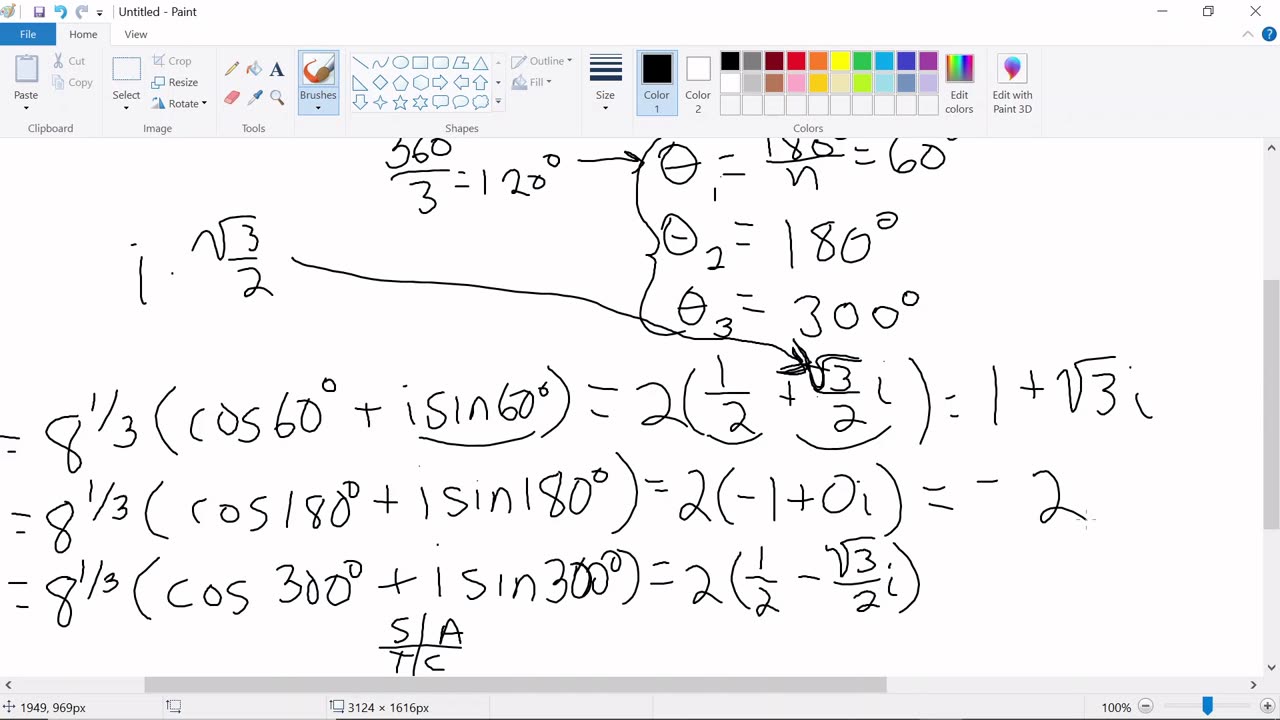 Untitled - Paint
File Home View
Paste Cut Copy Clipboard
Select Crop Resize Rotate Image
A Tools
Brushes
Outline Fill Shapes
Size
Color 1 Color 2 Edit colors Colors
Edit with Paint 3D
360/3 = 120° → θ₁ = 180°/n = 60°
θ₂ = 180°
i · √3/2
θ₃ = 300°
= 8^1/3 (cos60° + isin60°) = 2(1/2 + √3/2 i) = 1 + √3i
= 8^1/3 (cos180° + isin180°) = 2(-1+0i) = -2
= 8^1/3 (cos300° + isin300°) = 2(1/2 - √3/2 i)
S|A
T|C
1949, 969px 3124 × 1616px 100%